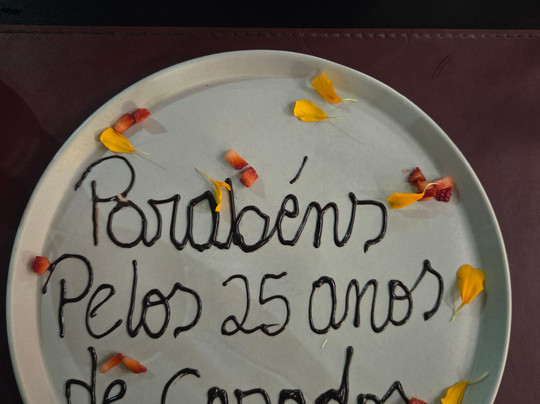 Parabéns
Pelos 25 anos
de